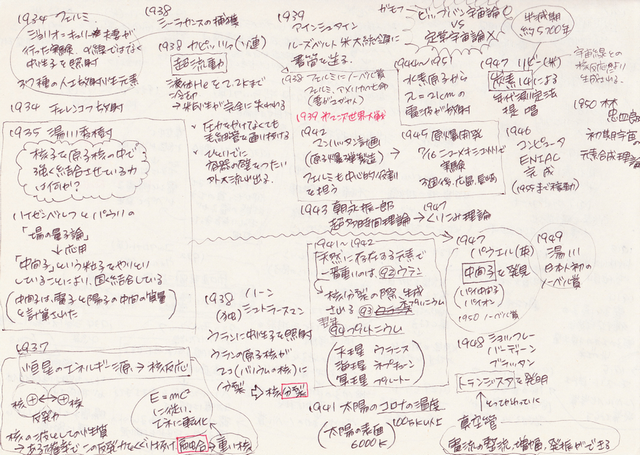 1934 フェルミ
中性子を照射
37種の人工放射性元素
1934 チェレンコフ放射
1935 湯川秀樹
核子を原子核の中で
強く結合させている力
は何か?
ハイゼンベルクとパウリの
「場の量子論」
↓応用
「中間子」という粒子をやりとり
していることにより、固く結合している
(中間子は、電子と陽子の中間の質量
と計算された)
1937
恒星のエネルギー源→核反応
核⊕←→⊕核
反発力
核の波としての性質
→ある確率でこの反発力をくぐり抜け融合→重い核
E=mc²
に従い、
1938
シーラカンスの捕獲
1938 カピッツァ(ソ連)
超流動
液体Heを2.2Kまで
冷却
→粘性が完全に失われる
・圧力をかけなくても
毛細管を通り抜ける
・ひとりでに
容器の壁をつたい
外へ流れ出る。
1938 ハーン
(独) シュトラースマン
ウランに中性子を照射
ウランの原子核が
2つ(バリウムの核)に
分裂 ⇒ 核分裂
1939
アインシュタイン
ルーズベルト米大統領に
書簡を送る。
1938 フェルミにノーベル賞
フェルミ、アメリカに亡命
(妻がユダヤ人)
1939 第二次世界大戦
1942
マンハッタン計画
(原子爆弾製造)
フェルミも中心的な役割
を担う
1943 朝永振一郎
超多時間理論→
1947
くりこみ理論
1941〜1942
天然に存在する元素で
一番重いのは、92ウラン
核分裂の際、生成
される 93ネプツニウム
94プルトニウム
天王星 ウラヌス
海王星 ネプチューン
冥王星 プルートー
1941 太陽のコロナの温度
100万K以上
(太陽の表面
6000K)
ガモフ
ビッグバン宇宙論○
VS
定常宇宙論×
1944〜1951
水素原子から
λ=21cmの
電波が放射
1945 原爆開発
7/16 ニューメキシコ州で
実験
3週間後、広島、長崎
1946
コンピュータ
ENIAC
完成
半減期
約5700年
1947 リビー(米)
炭素14による
年代測定法
提唱
宇宙線との
核反応により
生成される。
1950 林
忠四郎
初期宇宙の
元素合成理論
1947
パウエル(英)
中間子を発見
(パイ中間子
パイオン)
1950 ノーベル賞
1949
湯川
日本人初の
ノーベル賞
1948 ショックレー
バーディーン
ブラッタン
トランジスタを発明
↑とってかわっていく
真空管
電流の整流、増幅、発振ができる